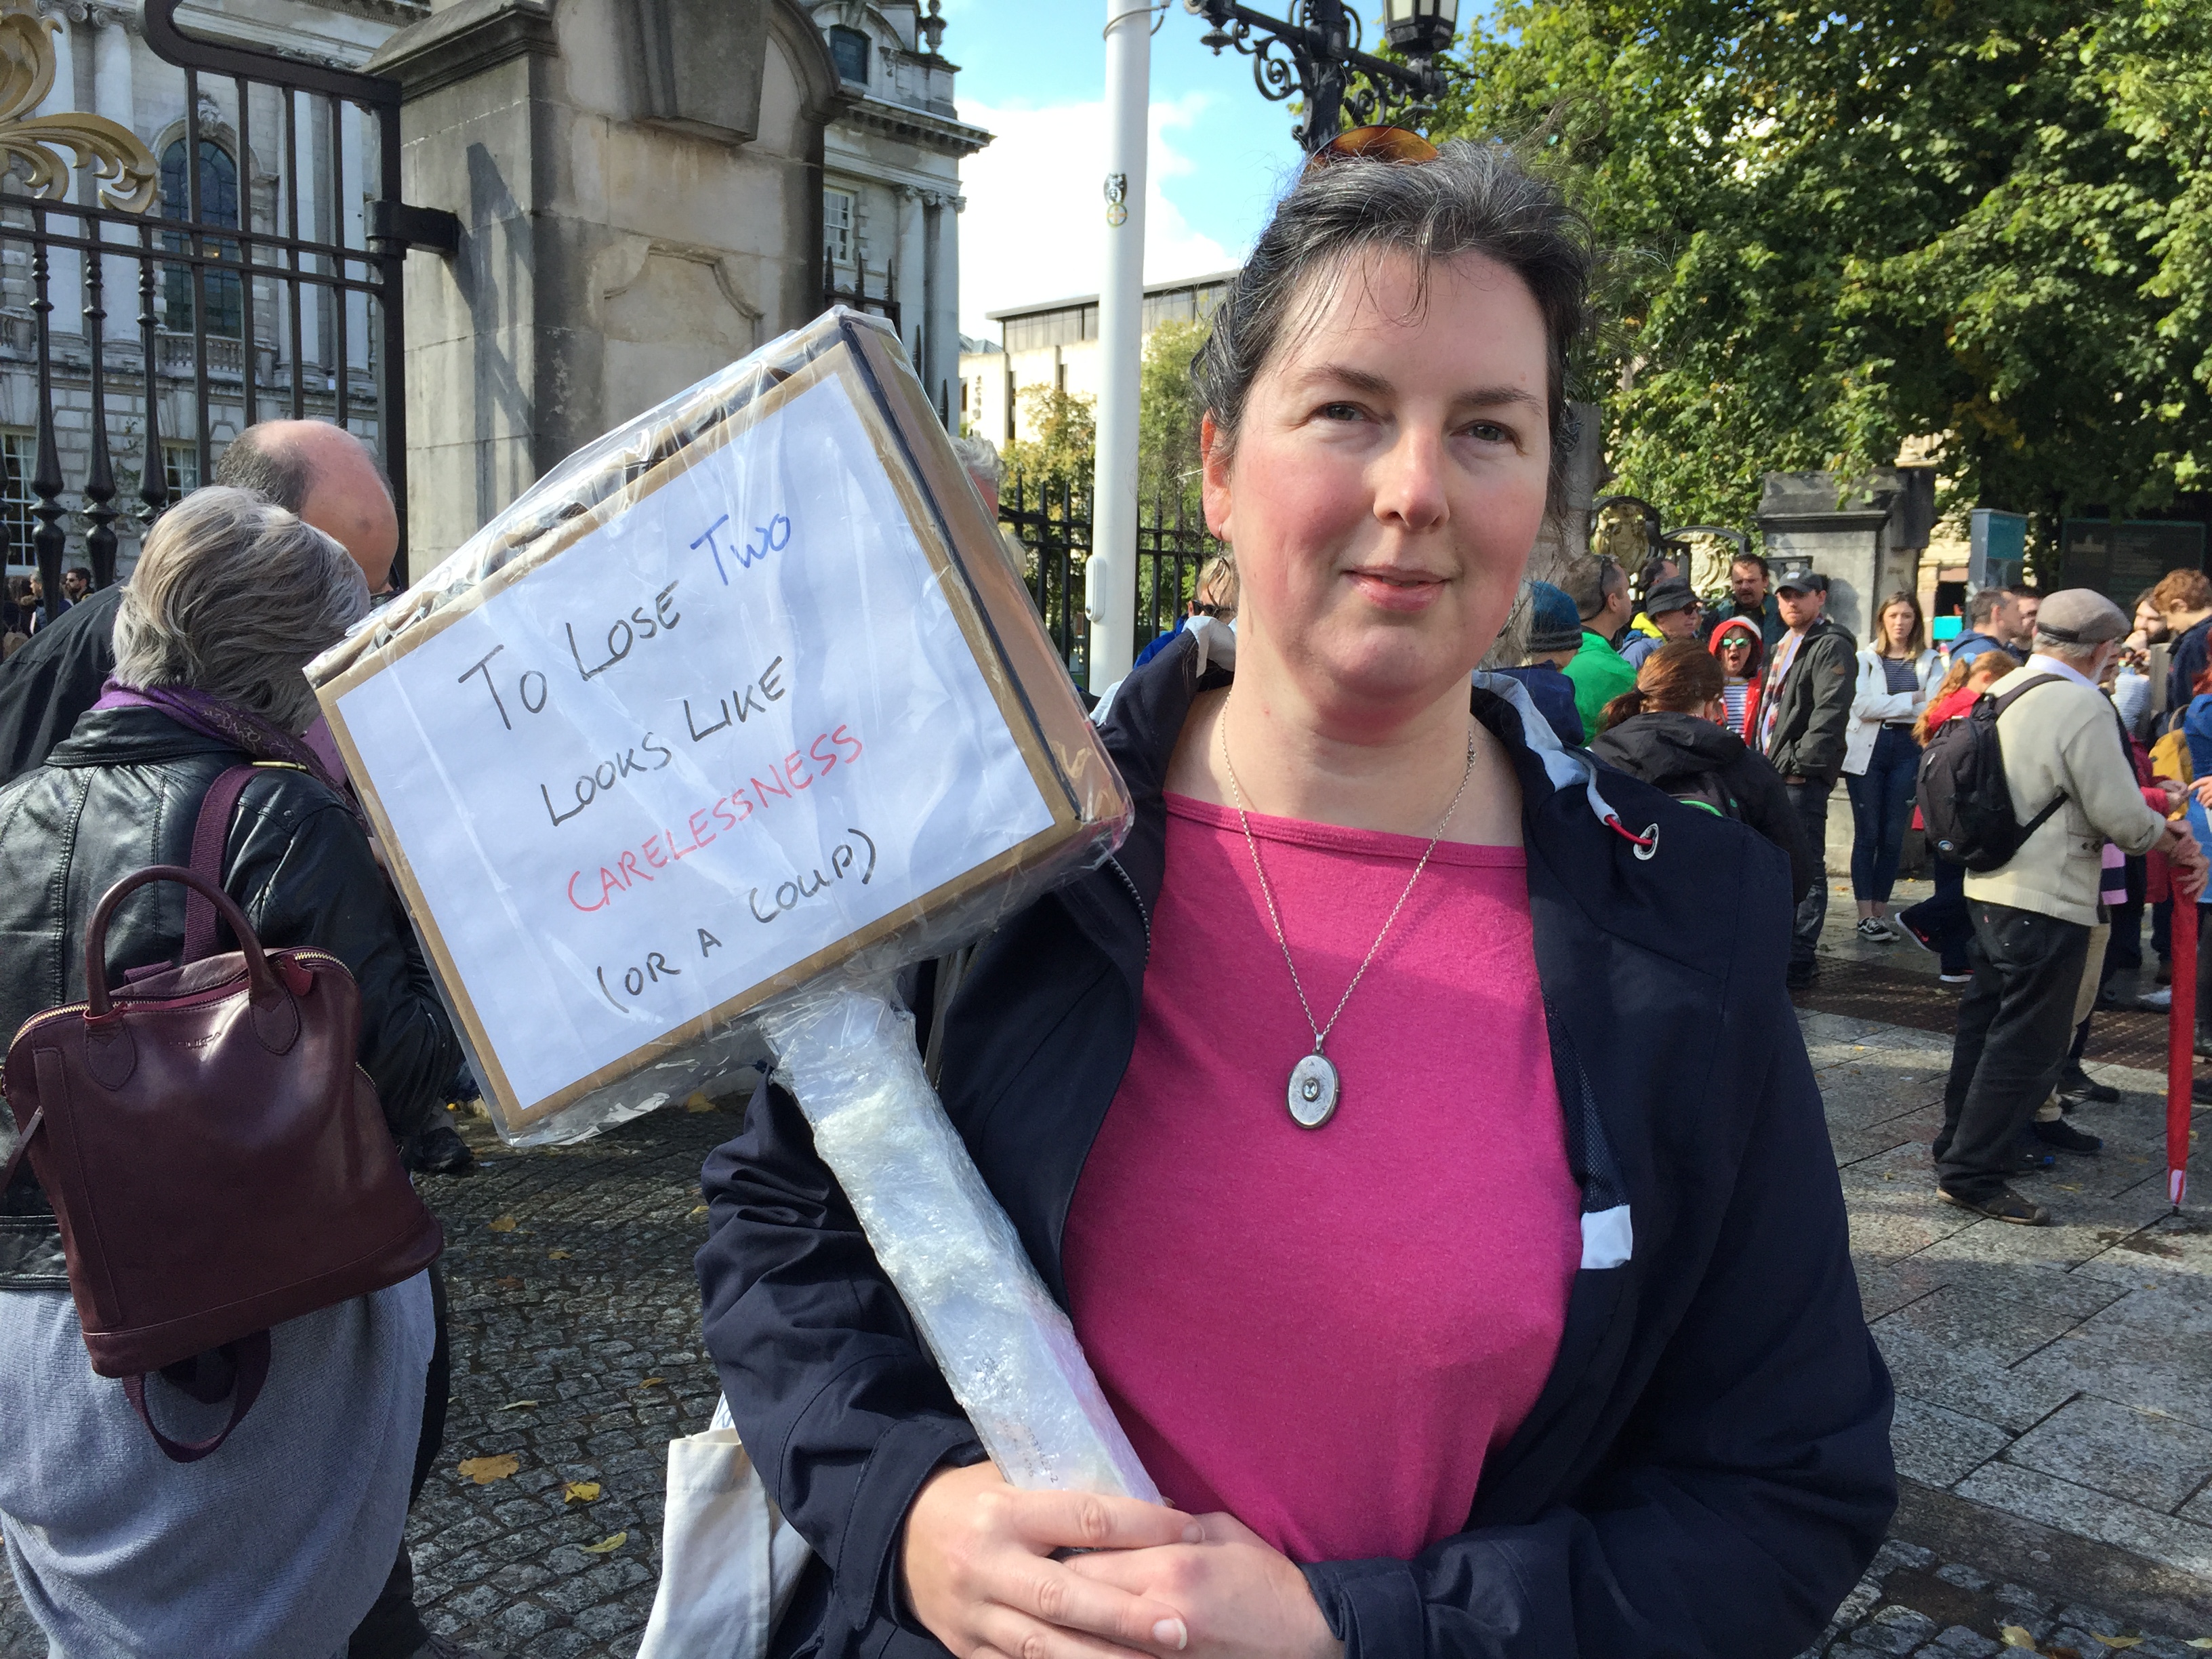 To LOSE TWO
LOOKS LIKE
CARELESSNESS
(OR A COUP)